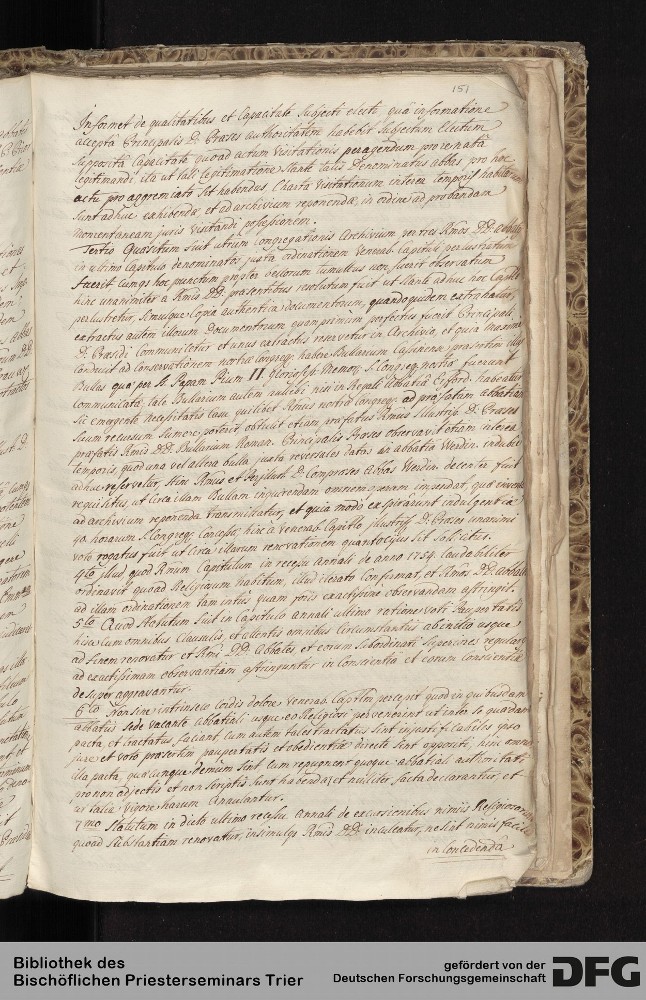 151
Informet de qualitatibus et Capacitate Subjecti electi, quâ informatione
acceptâ Principalis D. Præses authoritatem habebit Subjectum Electum
Suppositâ Capacitate quoad actum Visitationis peragendum pro re natâ
legitimandi, ita ut tali legitimatione stante talis Denominatus abbas pro hoc
actu pro aggremiato sit habendus Charta Visitationum interea temporis
sunt adhuc exhibendæ et ad archivium reponendæ, in ordine ad probandam
momentaneam juris visitandi possessionem.
Tertio Quæsitum fuit utrum congregationis Archivium per tres Rmos DD. abbates
in ultimo Capitulo denominatos juxta ordinationem Venerab. Capituli perlustratum
fuerit cumqs hoc punctum propter bellorum tumultus non fuerit observatum
hinc unanimiter a Rmis DD. præsentibus resolutum fuit ut stante adhuc hoc Capitlo
perlustretur, simulque Copia authentica documentorum, quandoquidem extrahatur,
extractus autem illorum Documentorum quamprimum perfectus fuerit Principali
D. Præsidi Communicetur et unus extractus reservetur in Archivio, et quia maxime
conducit ad conservationem nostræ Congreg. habere Bullarium Casinense
Bullas quæ per St. Papam Pium II gloriosiss. Memor. S. Congreg. nostræ fuerunt
communicatæ, tale Bullarium autem nullibi nisi in Regali Abbatia habeatur
sic emergente necessitatis casu quilibet Rmus nostræ congreg. ad præfatam abbatiam
suum recursum sumere poterit obtulit etiam præfatus Rmus Illustriss. D. Præses
præfatis Rmis DD. Bullarium Roman. Principalis Præses observavit etiam interea
temporis, quod una vel altera bulla juxta reversales datas in abbatia Werdin.
adhuc reservetur, hinc Rmus et Perillust. D. Compræses Abbas Werdin. decenter fuit
requisitus, ut circa illam Bullam inquirendam omnem operam impendat, quæ inventa
ad archivium reponenda transmittatur, et quia modo expirârunt indulgentiæ
40 horarum S. Congreg. Concessæ, hinc a Venerab. Capitlo Illustriss. D. Præses unanimi
voto rogatus fuit ut circa illarum renovationem quantocius sit sollicitus.
4to illud, quod Rmum Capitulum in recessu Annali de anno 1754 laudabiliter
ordinavit quoad Religiosum habitum, illud iterato Confirmat, et Rmos DD. abbates
ad illam ordinationem tam intus quam foris exactissime observandam astringit.
5to Quod Statutum fuit in Capitulo annali ultimo ratione voti Paupertatis
hisce cum omnibus Clausulis, et allentis omnibus Circumstantiis
ad finem renovatur et Rmi DD. Abbates et eorum Subordinati Superiores regulares
ad exactissimam observantiam astringuntur in Conscientiâ et eorum Conscientiæ
desuper aggravantur.
6to Non sine intrinseco Cordis dolore Venerab. Capitlm percepit quod in quibusdam
abbatiis sede vacante abbatiali usque eo Religiosi pervenerint ut inter se quædam
pacta, et tractatus faciant cum autem tales tractatus sint injustificabiles ipso
jure et voto præsertim paupertatis et obedientiæ directe sint oppositi, hinc omnia
illa pacta, quæcunque demum sint cum repugnent quoque abbatiali authoritati
pro non adjectis et non scriptis sunt habenda, et nulliter facta declarantur, et
ut talia Vigore harum Annulantur.
7mo Statutum in dicto ultimo recessu Annali de excursionibus nimiis Religiosorum
quoad Substantiam renovatur, insimulqe Rmis DD. inculcatur, ne sint nimis faciles
in Concedenda
Bibliothek des
Bischöflichen Priesterseminars Trier
gefördert von der
Deutschen Forschungsgemeinschaft
DFG